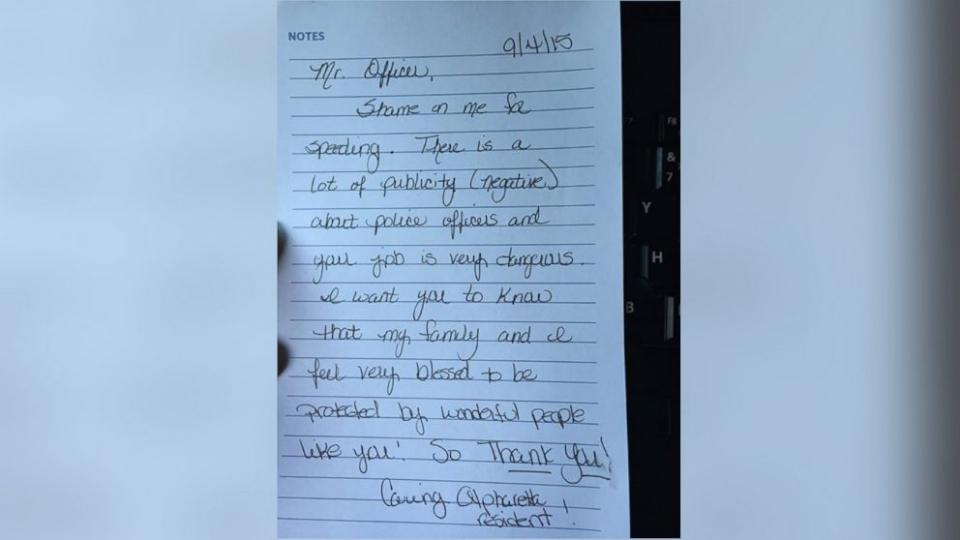 NOTES
9/4/15
Mr. Officer,
Shame on me for
speeding. There is a
lot of publicity (negative)
about police officers and
your job is very dangerous.
I want you to know
that my family and I
feel very blessed to be
protected by wonderful people
like you! So Thank You!
Caring Alpharetta
resident!
7
F8
&
7
Y
H
B